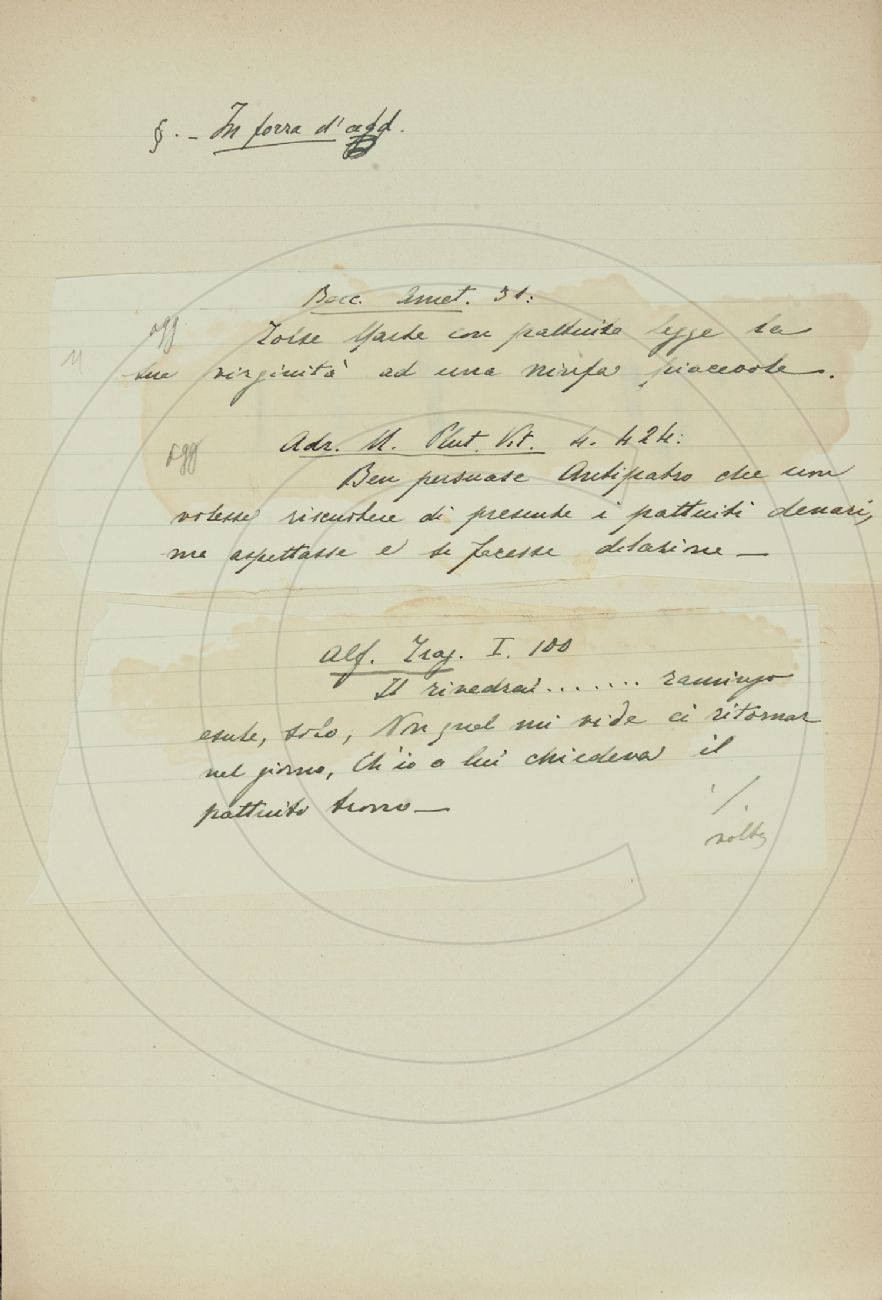 §. - In forza d' add.
Bocc. Amet. 31:
agg Tolse Marte con pattuita legge la
M sua virginità ad una ninfa piacevole.
agg Adr. M. Plut. Vit. 4. 424:
Ben persuase Antipatro che non
volesse riscuotere di presente i pattuiti denari,
ma aspettasse e se facesse dilazione —
Alf. Trag. I. 100
Il rivedrai....... ramingo
esule, solo, Non quel mi vide ei ritornar
nel giorno, Ch'io a lui chiedeva il
pattuito trono —
./.
volta